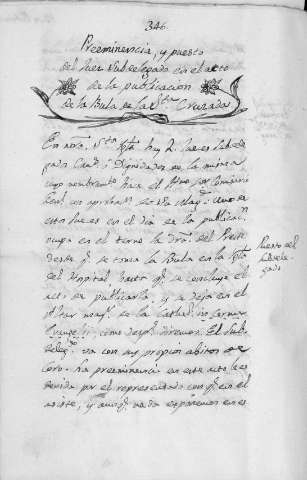 346
Preeminencia, y puesto
del Juez Subdelegado en el acto
de la publicacion
de la Bula de la Sta. Cruzada
En nra. Sta. Igla. hay 2. Jueces Subdele
gados Can. i Dignidades de la misma
cuyo nombramto. hace el
Real con aprobacn. de su Mag.
estos Jueces en el dia de la publicacn.
en el terno la dra. del Presi
dente qe. se toma la Bula en la Igla.
del Hospital, hasta qe. se concluye el
acto de publicarla, y se deja en el
Altar mayr. de la Cathedl. in cornu
Evangelii, como desps. diremos. El Sub
deleg. va con sus propios abitos de
Coro. La preeminencia en este acto
tenida por el representado con qe. en el
asiste, y aunqe. nada exponemos en es
Puesto del
subdele
gado